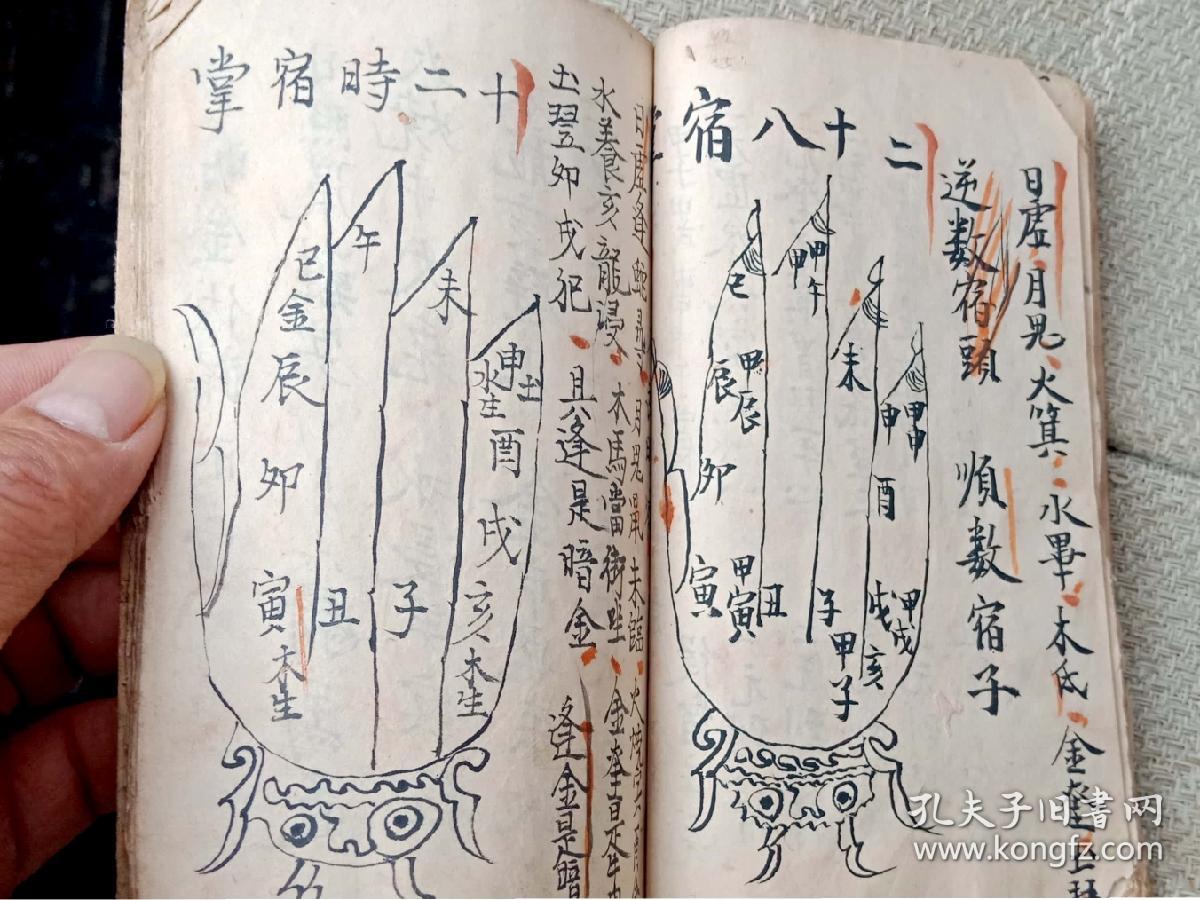 日虛月鬼火箕水畢木氐金奎土
逆數宿頭 順數宿子
二十八宿
巳
甲午
甲
未
申
甲申
辰
甲辰
酉
卯
寅
甲寅
丑
子
甲子
戌
甲戌
亥
月鬼鼠未臨
水養亥龍浸木馬當街坐金奎
土翌卯戌犯且逢是暗金逢金是暗
十二時宿掌
巳金
午
未
申土
水生
辰
酉
卯
戌
寅木生
丑
子
亥木生
孔夫子旧書网
www.kongfz.com